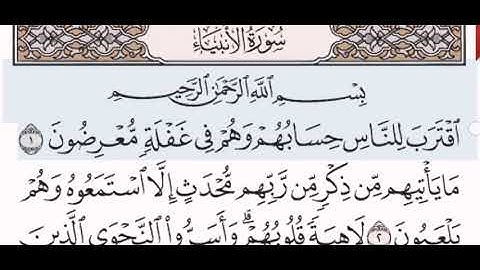 سُورَةُ الأَنبِيَاءِ
بِسْمِ ٱللَّهِ ٱلرَّحْمَٰنِ ٱلرَّحِيمِ
ٱقْتَرَبَ لِلنَّاسِ حِسَابُهُمْ وَهُمْ فِى غَفْلَةٍ مُّعْرِضُونَ ١
مَا يَأْتِيهِم مِّن ذِكْرٍ مِّن رَّبِّهِم مُّحْدَثٍ إِلَّا ٱسْتَمَعُوهُ وَهُمْ
يَلْعَبُونَ ٢ لَاهِيَةً قُلُوبُهُمْ ۗ وَأَسَرُّوا۟ ٱلنَّجْوَى ٱلَّذِينَ